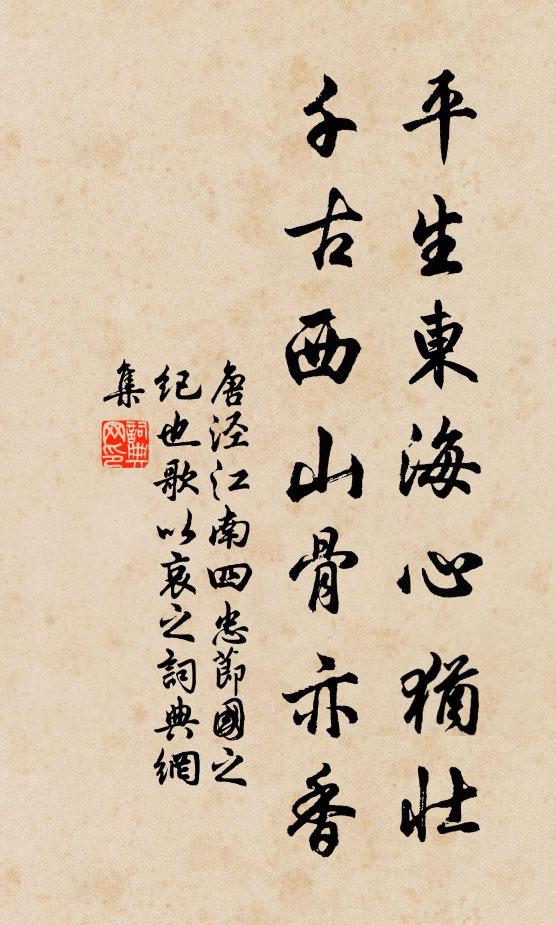 平生東海心猶壯
千古西山骨亦香
唐涇江南四忠節國之
紀也歌以哀之詞典網
集
詞典
网印